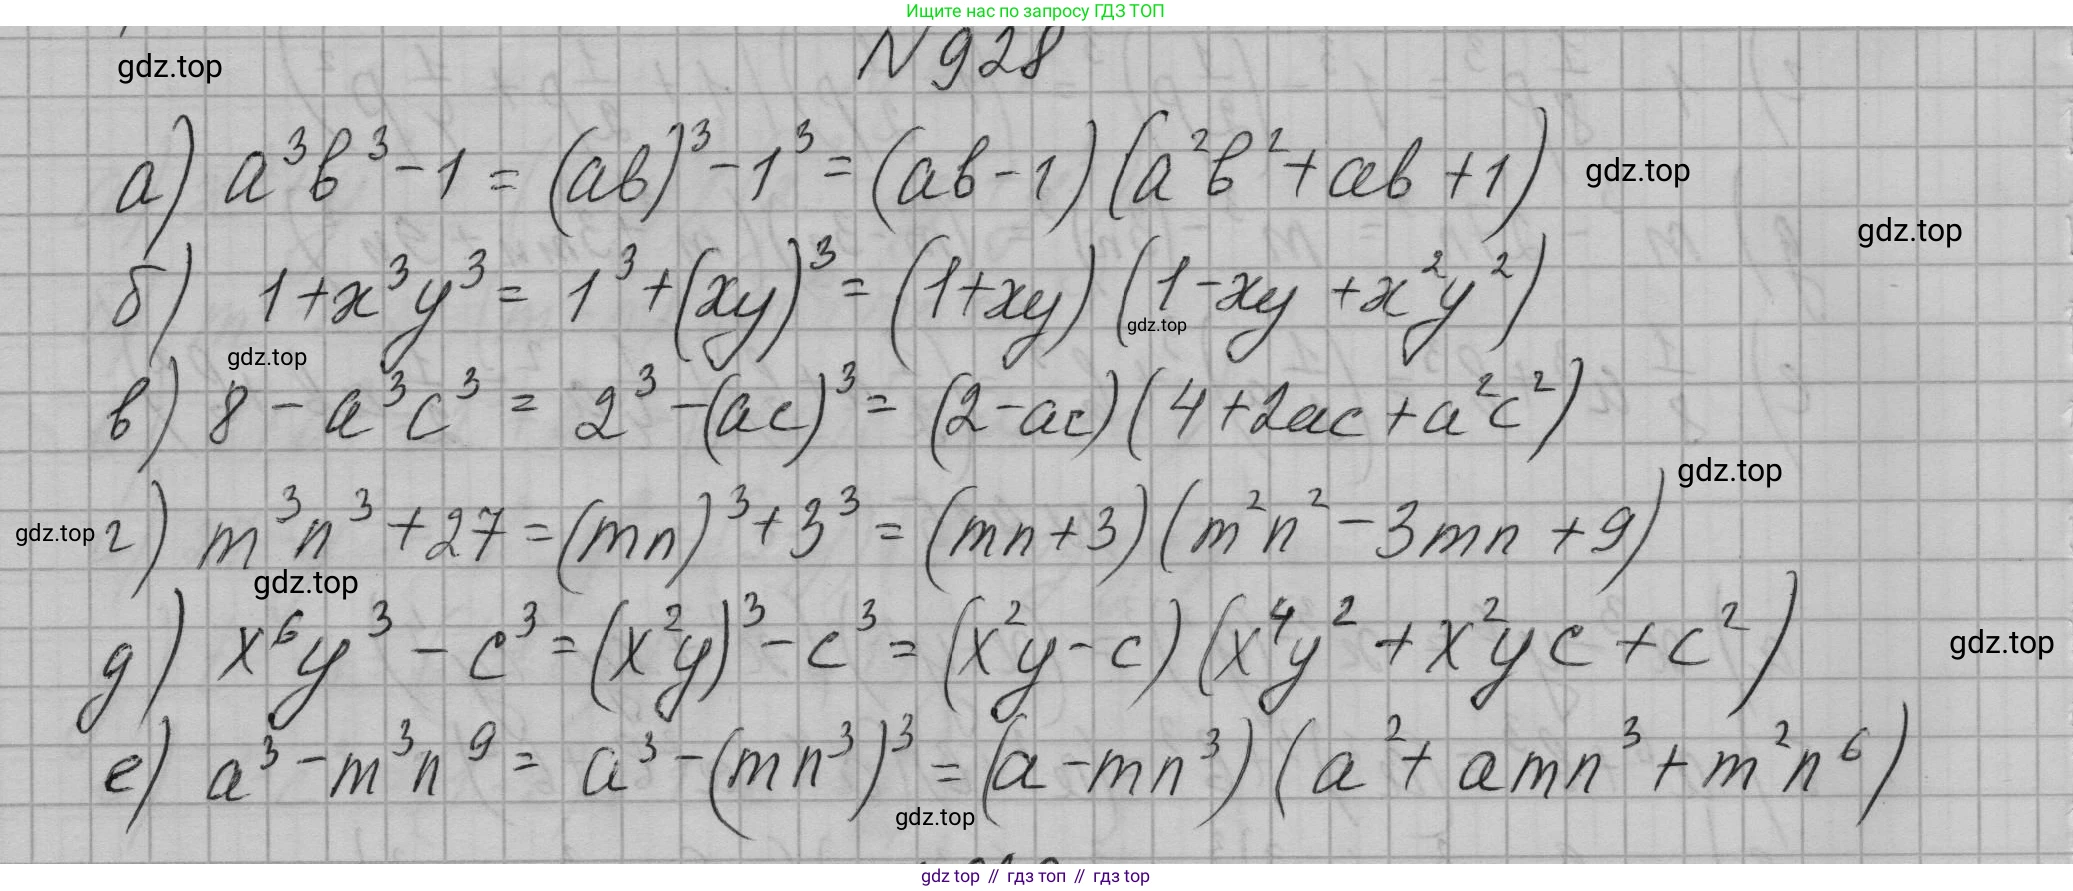 Ищите нас по запросу ГДЗ ТОП
gdz.top
N 928
а) a³b³ - 1 = (ab)³ - 1³ = (ab - 1)(a²b² + ab + 1)
gdz.top
gdz.top
б) 1 + x³y³ = 1³ + (xy)³ = (1 + xy)(1 - xy + x²y²)
gdz.top
gdz.top
в) 8 - a³c³ = 2³ - (ac)³ = (2 - ac)(4 + 2ac + a²c²)
gdz.top
gdz.top
г) m³n³ + 27 = (mn)³ + 3³ = (mn + 3)(m²n² - 3mn + 9)
gdz.top
д) x⁶y³ - c³ = (x²y)³ - c³ = (x²y - c)(x⁴y² + x²yc + c²)
gdz.top
е) a³ - m³n⁹ = a³ - (mn³)³ = (a - mn³)(a² + amn³ + m²n⁶)
gdz.top
gdz top // гдз топ // гдз top